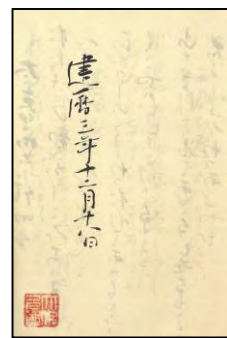 建暦三年十二月十八日